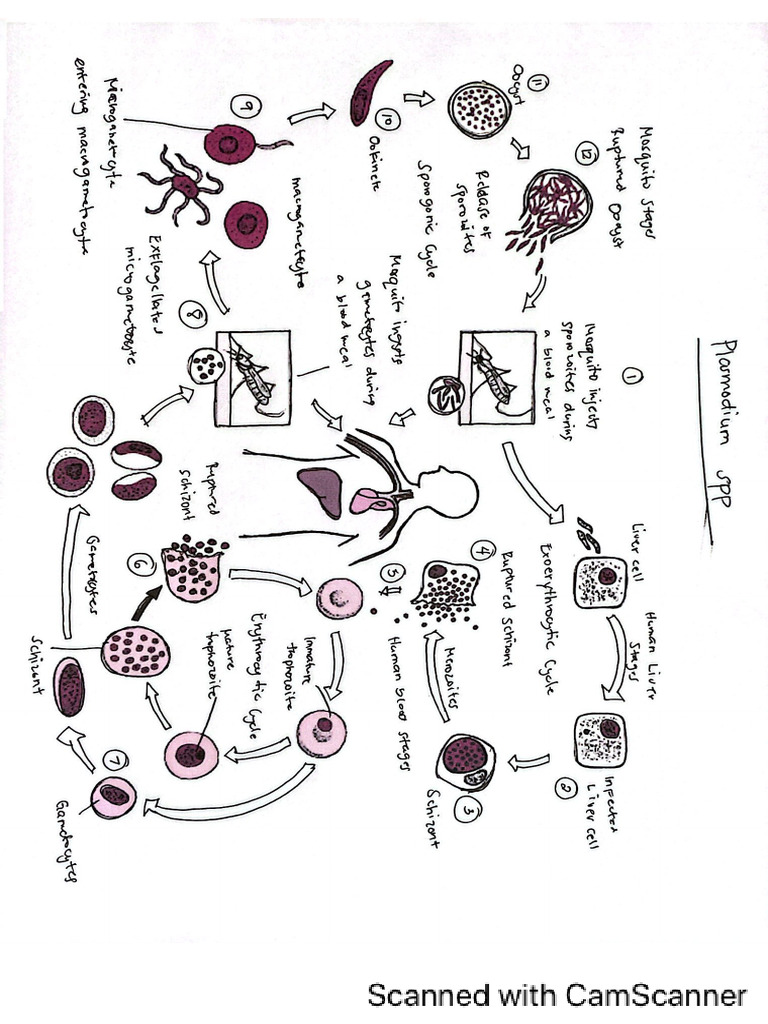 Plasmodium spp
Mosquito Stages
Ruptured Oocyst
12
11
Oocyst
Release of
sporozoites
Sporogonic Cycle
10
Ookinete
9
Microgametocyte
entering macrogametocyte
macrogametocyte
Exflagellated
microgametocyte
8
Mosquito ingests
gametocytes during
a blood meal
1
Mosquito injects
sporozoites during
a blood meal
Liver cell
Human Liver
Stages
Infected
Liver cell
2
Exoerythrocytic Cycle
4
Ruptured Schizont
Merozoites
3
Schizont
5
Human blood stages
Immature
trophozoite
Erythrocytic Cycle
mature
trophozoite
Ruptured
schizont
6
Gametocytes
Schizont
7
Gametocytes
Scanned with CamScanner